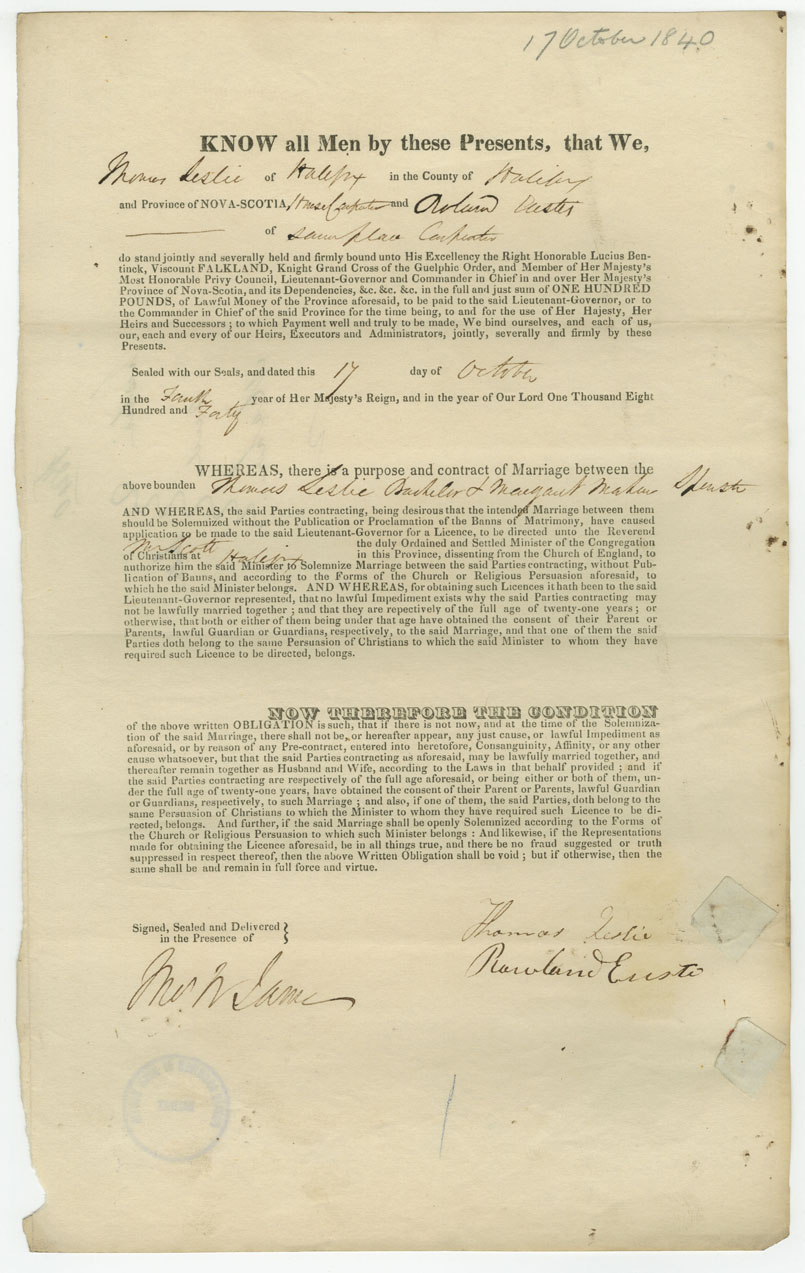 17 October 1840
KNOW all Men by these Presents, that We,
Thomas Leslie of Halifax in the County of Halifax
and Province of NOVA-SCOTIA, House Carpenter and
of same place Carpenter
do stand jointly and severally held and firmly bound unto His Excellency the Right Honorable Lucius Ben-
tinck, Viscount FALKLAND, Knight Grand Cross of the Guelphic Order, and Member of Her Majesty's
Most Honorable Privy Council, Lieutenant-Governor and Commander in Chief in and over Her Majesty's
Province of Nova-Scotia, and its Dependencies, &c. &c. &c. in the full and just sum of ONE HUNDRED
POUNDS, of Lawful Money of the Province aforesaid, to be paid to the said Lieutenant-Governor, or to
the Commander in Chief of the said Province for the time being, to and for the use of Her Hajesty, Her
Heirs and Successors ; to which Payment well and truly to be made, We bind ourselves, and each of us,
our, each and every of our Heirs, Executors and Administrators, jointly, severally and firmly by these
Presents.
Sealed with our Seals, and dated this 17 day of October
in the Fourth year of Her Majesty's Reign, and in the year of Our Lord One Thousand Eight
Hundred and Forty
WHEREAS, there is a purpose and contract of Marriage between the
above bounden Thomas Leslie Bachelor & Margaret Mahon Spinster
AND WHEREAS, the said Parties contracting, being desirous that the intended Marriage between them
should be Solemnized without the Publication or Proclamation of the Banns of Matrimony, have caused
application to be made to the said Lieutenant-Governor for a Licence, to be directed unto the Reverend
Mr Scott the duly Ordained and Settled Minister of the Congregation
of Christians at Halifax in this Province, dissenting from the Church of England, to
authorize him the said Minister to Solemnize Marriage between the said Parties contracting, without Pub-
lication of Banns, and according to the Forms of the Church or Religious Persuasion aforesaid, to
which he the said Minister belongs. AND WHEREAS, for obtaining such Licences it hath been to the said
Lieutenant-Governor represented, that no lawful Impediment exists why the said Parties contracting may
not be lawfully married together ; and that they are repectively of the full age of twenty-one years ; or
otherwise, that both or either of them being under that age have obtained the consent of their Parent or
Parents, lawful Guardian or Guardians, respectively, to the said Marriage, and that one of them the said
Parties doth belong to the same Persuasion of Christians to which the said Minister to whom they have
required such Licence to be directed, belongs.
NOW THEREFORE THE CONDITION
of the above written OBLIGATION is such, that if there is not now, and at the time of the Solemniza-
tion of the said Marriage, there shall not be, or hereafter appear, any just cause, or lawful Impediment as
aforesaid, or by reason of any Pre-contract, entered into heretofore, Consanguinity, Affinity, or any other
cause whatsoever, but that the said Parties contracting as aforesaid, may be lawfully married together, and
thereafter remain together as Husband and Wife, according to the Laws in that behalf provided ; and if
the said Parties contracting are respectively of the full age aforesaid, or being either or both of them, un-
der the full age of twenty-one years, have obtained the consent of their Parent or Parents, lawful Guardian
or Guardians, respectively, to such Marriage ; and also, if one of them, the said Parties, doth belong to the
same Persuasion of Christians to which the Minister to whom they have required such Licence to be di-
rected, belongs. And further, if the said Marriage shall be openly Solemnized according to the Forms of
the Church or Religious Persuasion to which such Minister belongs : And likewise, if the Representations
made for obtaining the Licence aforesaid, be in all things true, and there be no fraud suggested or truth
suppressed in respect thereof, then the above Written Obligation shall be void ; but if otherwise, then the
same shall be and remain in full force and virtue.
Signed, Sealed and Delivered
in the Presence of
Thomas Leslie
Rowland